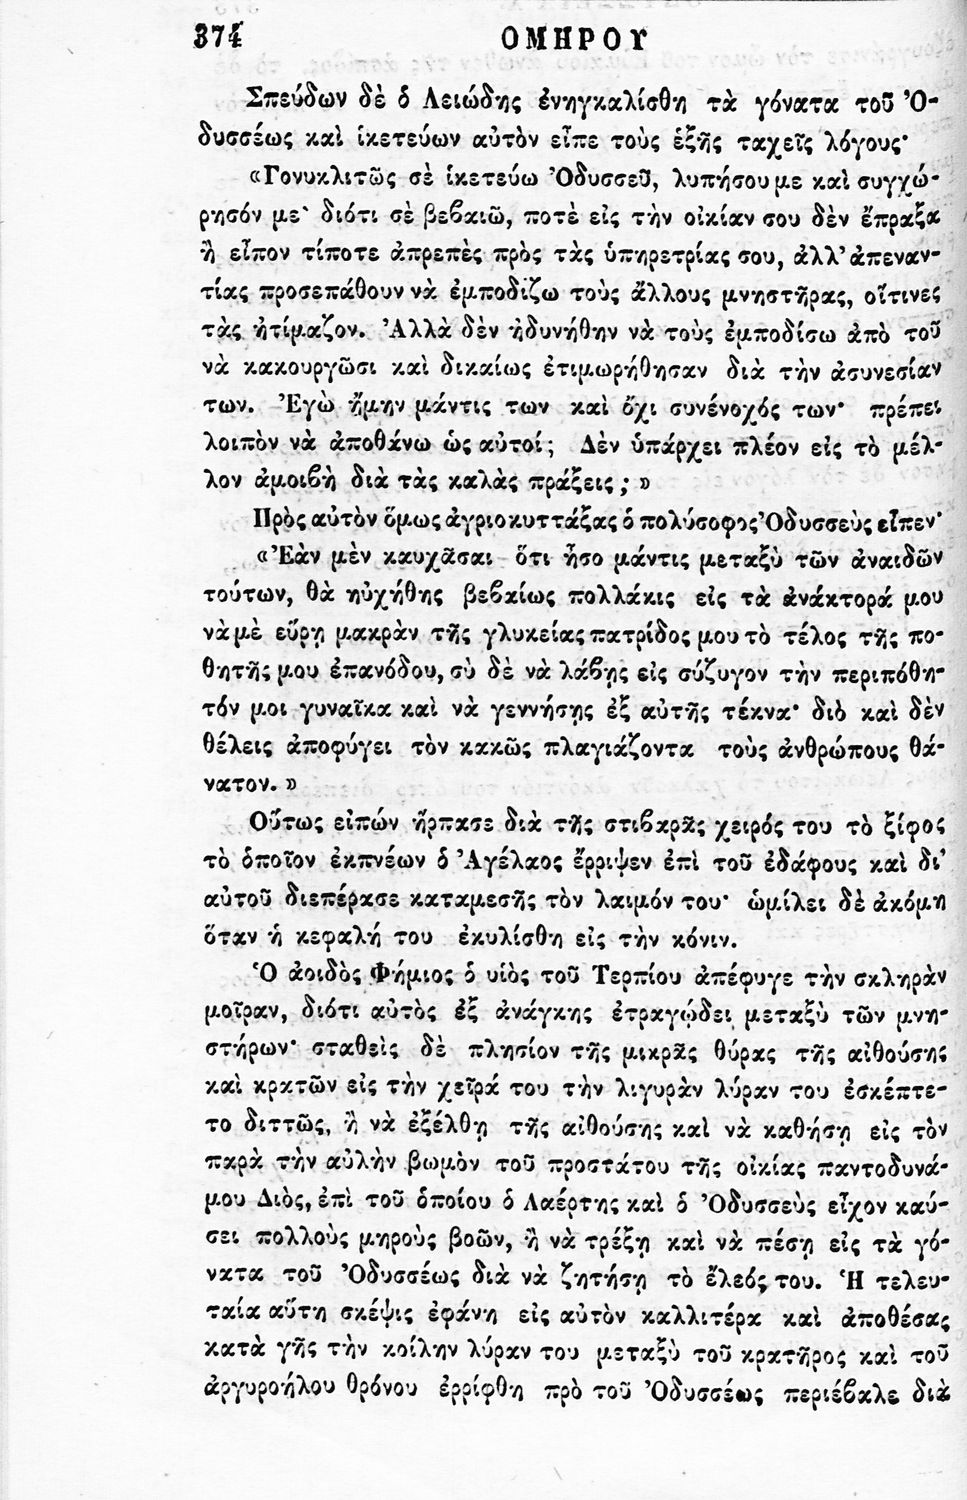 374
ΟΜΗΡΟΥ
Σπεύδων δὲ ὁ Λειώδης ἐνηγκαλίσθη τὰ γόνατα τοῦ Ὀ-
δυσσέως καὶ ἱκετεύων αὐτὸν εἶπε τοὺς ἑξῆς ταχεῖς λόγους·
«Γονυκλιτῶς σὲ ἱκετεύω Ὀδυσσεῦ, λυπήσου με καὶ συγχώ-
ρησόν με· διότι σὲ βεβαιῶ, ποτὲ εἰς τὴν οἰκίαν σου δὲν ἔπραξα
ἢ εἶπον τίποτε ἀπρεπὲς πρὸς τὰς ὑπηρετρίας σου, ἀλλ' ἀπεναν-
τίας προσεπάθουν νὰ ἐμποδίζω τοὺς ἄλλους μνηστῆρας, οἵτινες
τὰς ἠτίμαζον. Ἀλλὰ δὲν ἠδυνήθην νὰ τοὺς ἐμποδίσω ἀπὸ τοῦ
νὰ κακουργῶσι καὶ δικαίως ἐτιμωρήθησαν διὰ τὴν ἀσυνεσίαν
των. Ἐγὼ ἤμην μάντις των καὶ ὄχι συνένοχός των· πρέπει
λοιπὸν νὰ ἀποθάνω ὡς αὐτοί; Δὲν ὑπάρχει πλέον εἰς τὸ μέλ-
λον ἀμοιβὴ διὰ τὰς καλὰς πράξεις; »
Πρὸς αὐτὸν ὅμως ἀγριοκυττάξας ὁ πολύσοφος Ὀδυσσεὺς εἶπεν·
«Ἐὰν μὲν καυχᾶσαι ὅτι ἦσο μάντις μεταξὺ τῶν ἀναιδῶν
τούτων, θὰ ηὐχήθης βεβαίως πολλάκις εἰς τὰ ἀνάκτορά μου
νὰ μὲ εὕρῃ μακρὰν τῆς γλυκείας πατρίδος μου τὸ τέλος τῆς πο-
θητῆς μου ἐπανόδου, σὺ δὲ νὰ λάβῃς εἰς σύζυγον τὴν περιπόθη-
τόν μοι γυναῖκα καὶ νὰ γεννήσῃς ἐξ αὐτῆς τέκνα· διὸ καὶ δὲν
θέλεις ἀποφύγει τὸν κακῶς πλαγιάζοντα τοὺς ἀνθρώπους θά-
νατον. »
Οὕτως εἰπών ἥρπασε διὰ τῆς στιβαρᾶς χειρός του τὸ ξίφος
τὸ ὁποῖον ἐκπνέων ὁ Ἀγέλαος ἔρριψεν ἐπὶ τοῦ ἐδάφους καὶ δι'
αὐτοῦ διεπέρασε καταμεσῆς τὸν λαιμόν του· ὡμίλει δὲ ἀκόμη
ὅταν ἡ κεφαλή του ἐκυλίσθη εἰς τὴν κόνιν.
Ὁ ἀοιδὸς Φήμιος ὁ υἱὸς τοῦ Τερπίου ἀπέφυγε τὴν σκληρὰν
μοῖραν, διότι αὐτὸς ἐξ ἀνάγκης ἐτραγῴδει μεταξὺ τῶν μνη-
στήρων· σταθεὶς δὲ πλησίον τῆς μικρᾶς θύρας τῆς αἰθούσης
καὶ κρατῶν εἰς τὴν χεῖρά του τὴν λιγυρὰν λύραν του ἐσκέπτε-
το διττῶς, ἢ νὰ ἐξέλθῃ τῆς αἰθούσης καὶ νὰ καθήσῃ εἰς τὸν
παρὰ τὴν αὐλὴν βωμὸν τοῦ προστάτου τῆς οἰκίας παντοδυνά-
μου Διὸς, ἐπὶ τοῦ ὁποίου ὁ Λαέρτης καὶ ὁ Ὀδυσσεὺς εἶχον καύ-
σει πολλοὺς μηροὺς βοῶν, ἢ νὰ τρέξῃ καὶ νὰ πέσῃ εἰς τὰ γό-
νατα τοῦ Ὀδυσσέως διὰ νὰ ζητήσῃ τὸ ἔλεός του. Ἡ τελευ-
ταία αὕτη σκέψις ἐφάνη εἰς αὐτὸν καλλιτέρα καὶ ἀποθέσας
κατὰ γῆς τὴν κοίλην λύραν του μεταξὺ τοῦ κρατῆρος καὶ τοῦ
ἀργυροήλου θρόνου ἐρρίφθη πρὸ τοῦ Ὀδυσσέως περιέβαλε διὰ